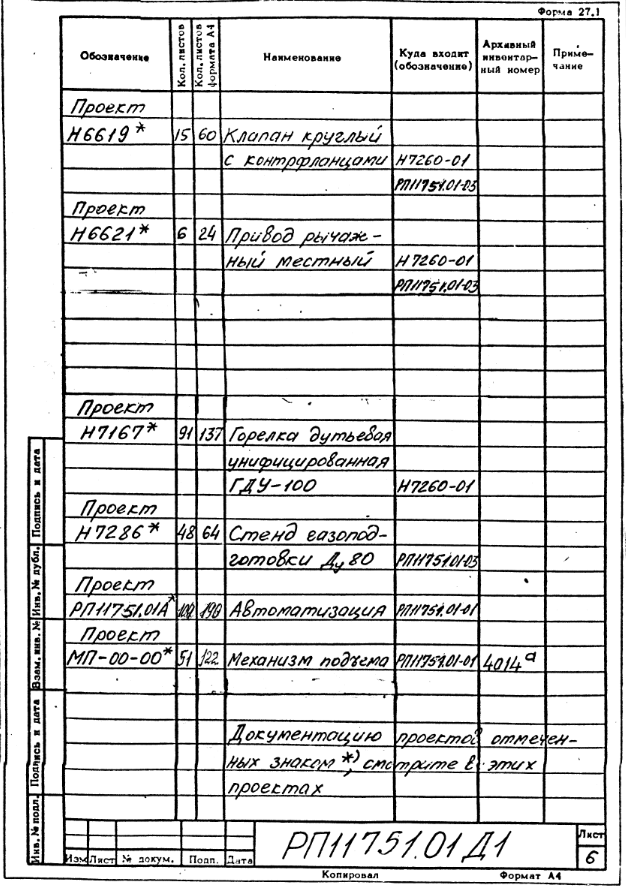 Форма 27.1
Обозначение Кол. листов Кол. листов формата А4 Наименование Куда входит (обозначение) Архивный инвентар- ный номер Приме- чание
Проект
Н6619* 15 60 Клапан круглый
с контрфланцами Н7260-01
РП11751.01-03
Проект
Н6621* 6 24 Привод рычаж-
ный местный Н7260-01
РП11751.01-03
Проект
Н7167* 91 137 Горелка дутьевая
унифицированная
ГДУ-100 Н7260-01
Проект
Н7286* 48 64 Стенд газопод-
готовки Ду 80 РП11751.01-03
Проект
РП11751.01А* 190 Автоматизация РП11751.01-01
Проект
МП-00-00* 51 122 Механизм подъема РП11751.01-01 4014а
Документацию проектов отмечен-
ных знаком *), смотрите в этих
проектах
Инв. № подл. Подпись и дата Взам. инв. № Инв. № дубл. Подпись и дата
Изм Лист № докум. Подп. Дата
РП11751.01 Д1
Лист
6
Копировал Формат А4